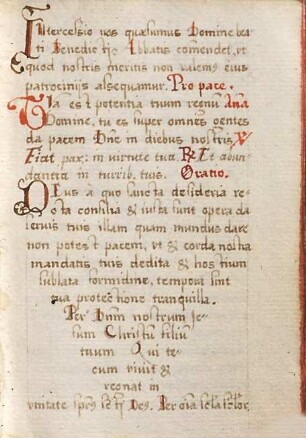 INtercessio nos quæsumus Domine bea
ti Benedicti Abbatis comendet, ut
quod nostris meritis non valemus eius
patrocinijs assequamur. Pro pace. Añã
Tua est potentia tuum regnũ
Domine, tu es super omnes gentes
da pacem Dñe in diebus nostris. ℣
Fiat pax: in virtute tua. ℟. Et abun
dantia in turrib. tuis. Oratio.
DEus à quo sancta desideria re
cta consilia & iusta sunt opera da
seruis tuis illam quam mundus dare
non potest pacem, ut & corda nostra
mandatis tuis dedita & hostium
sublata formidine, tempora sint
tua protectione tranquilla.
Per Dñm nostrum Ie
sum Christũ filiũ
tuum Qui te
cum viuit &
regnat in
vnitate